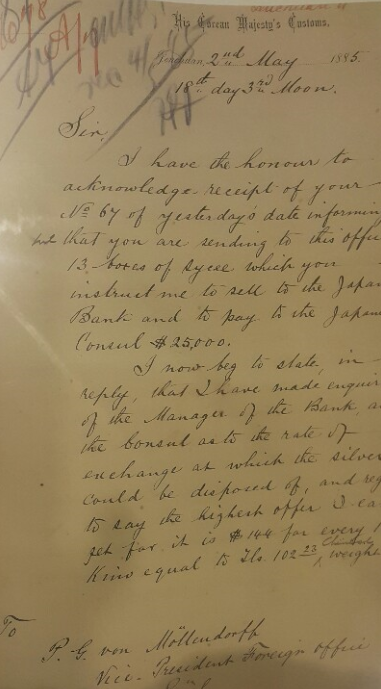 His Corean Majesty's Customs.
2nd May 1885.
18th day 3rd Moon.
Sir,
I have the honour to
acknowledge receipt of your
No 67 of yesterday's date informin
that you are sending to this offi
13 boxes of sycee which you
instruct me to sell to the Japan
Bank and to pay to the Japan
Consul $25,000.
I now beg to state, in
reply, that I have made enquir
of the Manager of the Bank, a
the Consul as to the rate of
exchange at which the silver
could be disposed of, and reg
to say the highest offer I ca
get for it is $144 for every
Kino equal to Tls. 102 weight
To
P. G. von Möllendorff
Vice-President Foreign office